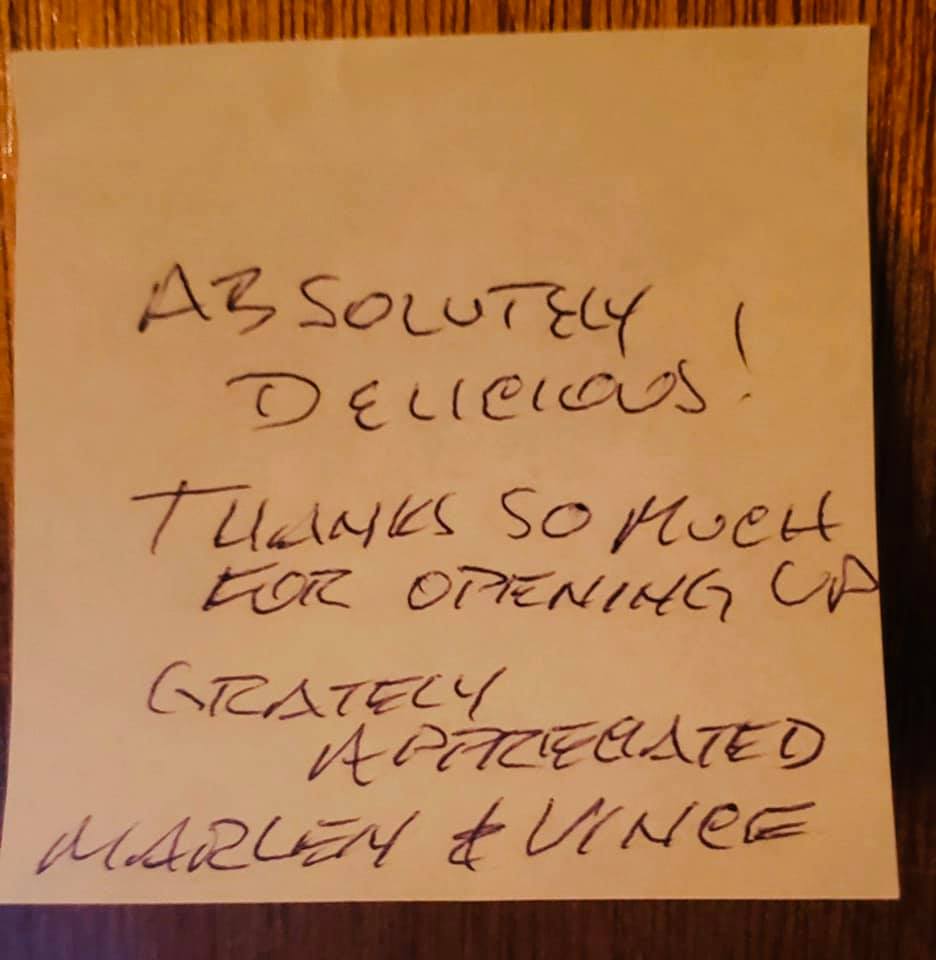 ABSOLUTELY
DELICIOUS!
THANKS SO MUCH
FOR OPENING UP
GRATELY
APPRECIATED
MARLEN & VINCE